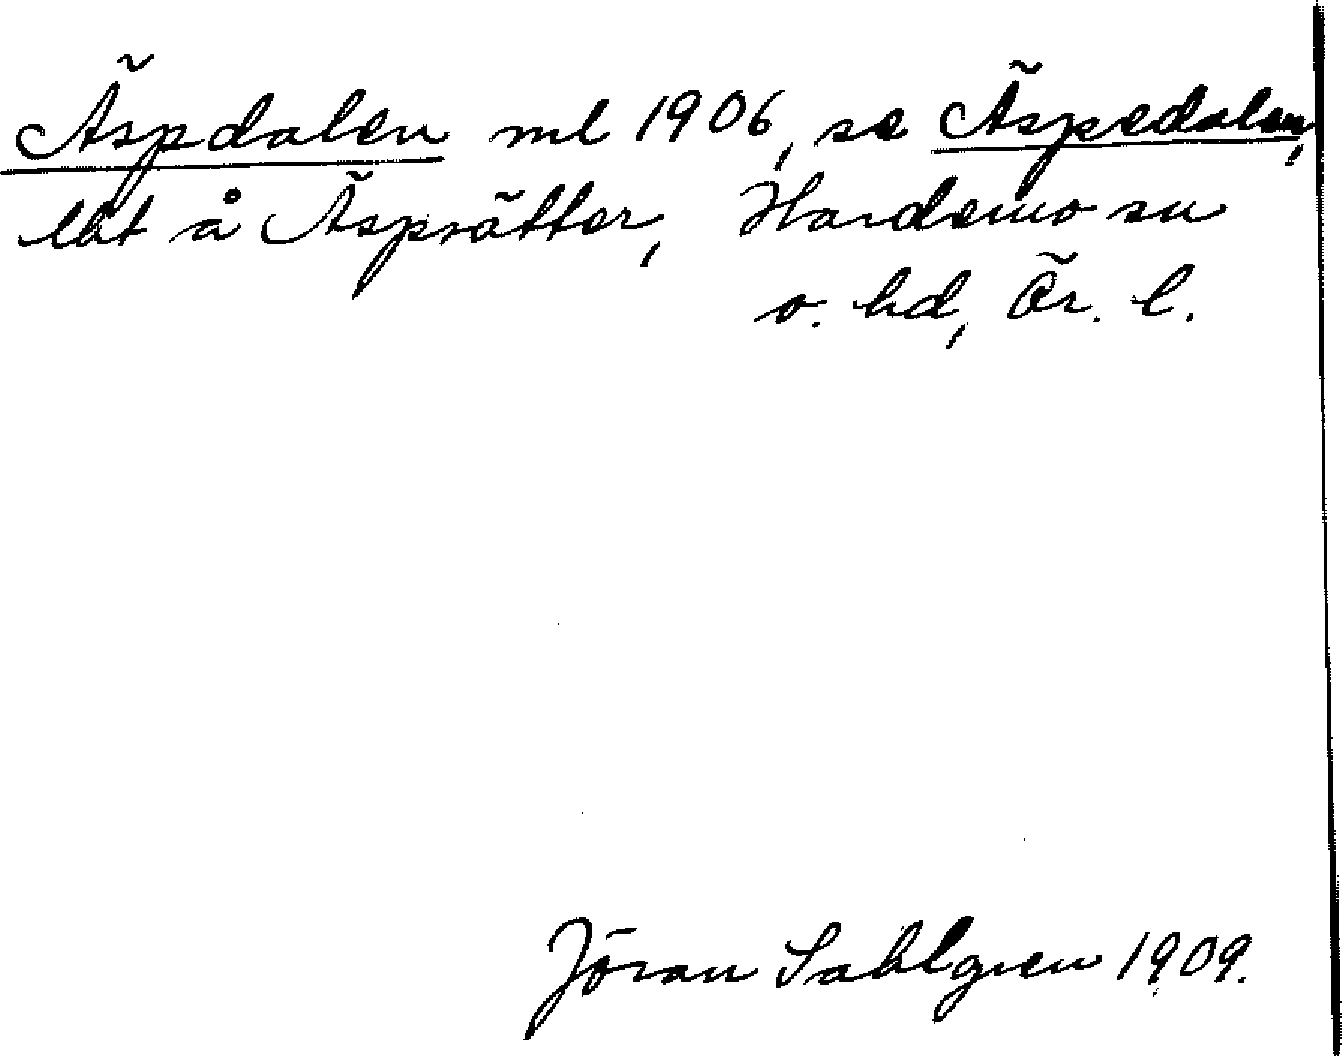 Äspdalen ml 1906, se Äspedalen,
lht å Äsprätter, Hardemo sn
o. hd, Ör. l.
Jöran Sahlgren 1909.